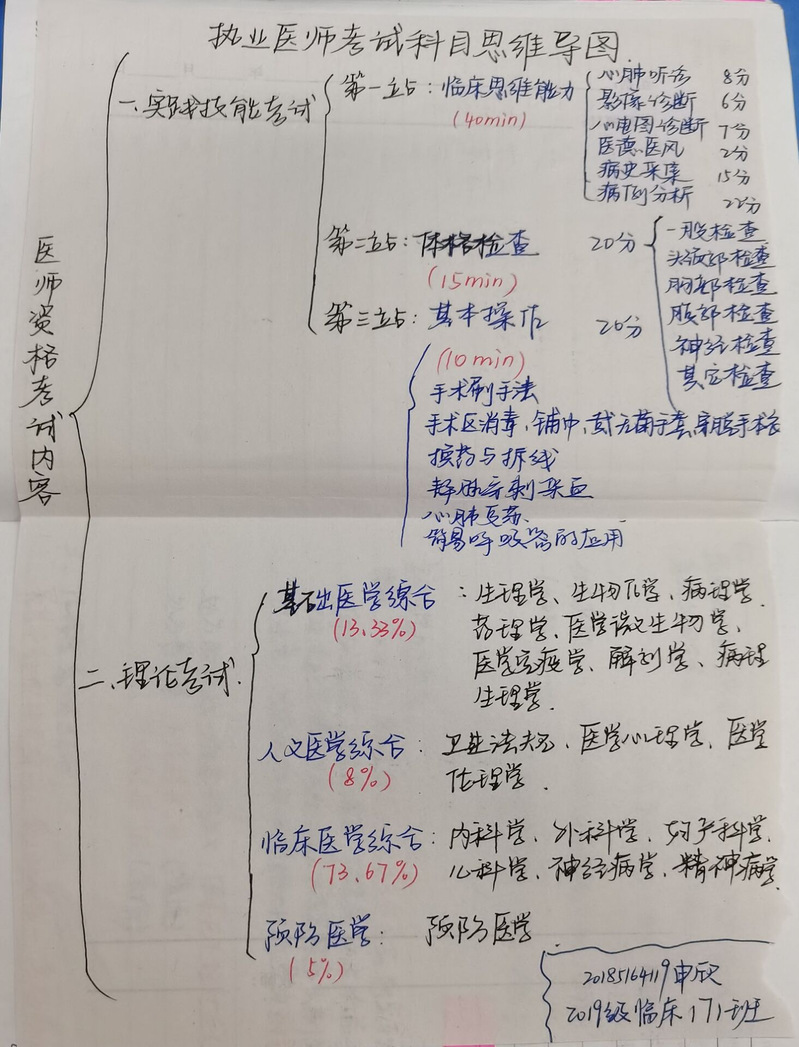 执业医师考试科目思维导图
医师资格考试内容
一、实践技能考试
第一站：临床思维能力
(40min)
心肺听诊 8分
影像诊断 6分
心电图诊断 7分
医德医风 2分
病史采集 15分
病例分析 22分
第二站：体格检查 20分
(15min)
一般检查
头颈部检查
胸部检查
腹部检查
神经检查
其它检查
第三站：基本操作 20分
(10min)
手术刷手法
手术区消毒、铺巾、戴无菌手套、穿脱手术衣
换药与拆线
静脉穿刺采血
心肺复苏、
简易呼吸器的应用
二、理论考试.
基础医学综合：生理学、生物化学、病理学、
(13.33%)
药理学、医学微生物学、
医学免疫学、解剖学、病理
生理学.
人文医学综合：卫生法规、医学心理学、医学
(8%)
伦理学.
临床医学综合：内科学、外科学、妇产科学、
(73.67%)
儿科学、神经病学、精神病学
预防医学：预防医学
(5%)
20185164119申欣
2019级临床171班